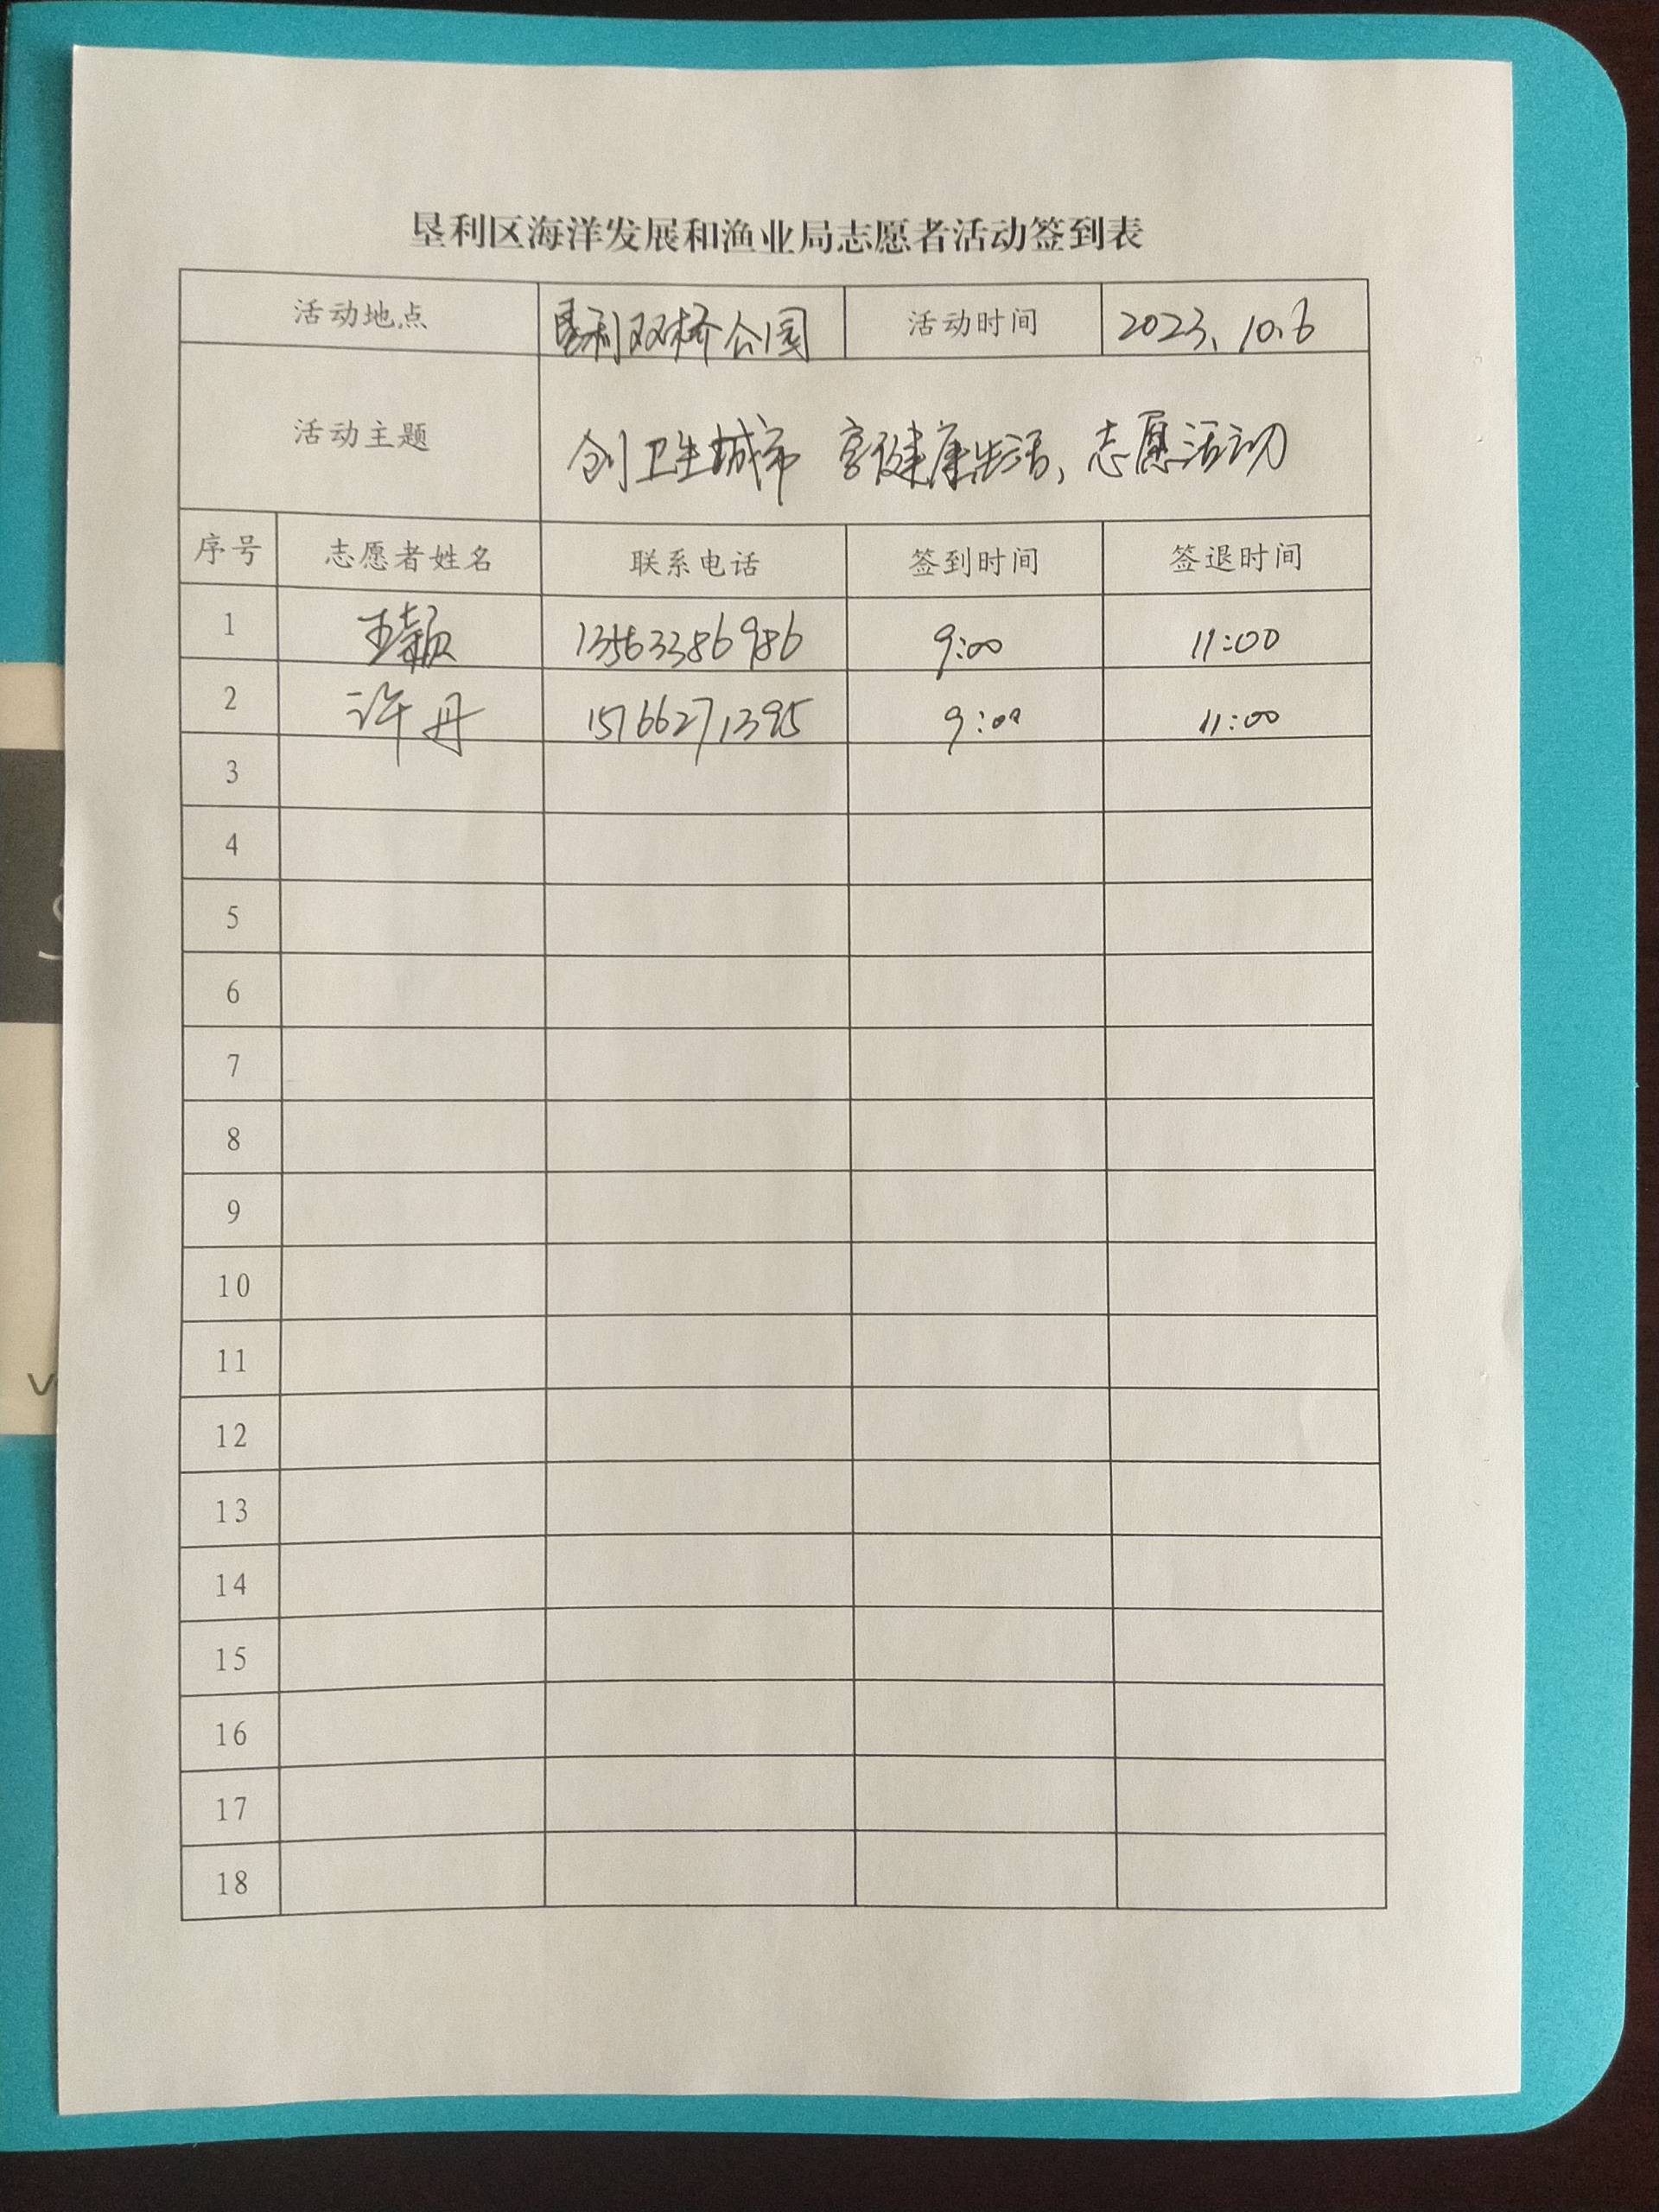 垦利区海洋发展和渔业局志愿者活动签到表
活动地点 垦利双桥公园 活动时间 2023.10.6
活动主题 创卫生城市 享健康生活，志愿活动
序号 志愿者姓名 联系电话 签到时间 签退时间
1 王颖 13563386986 9:00 11:00
2 许丹 15766271395 9:00 11:00
3
4
5
6
7
8
9
10
11
12
13
14
15
16
17
18